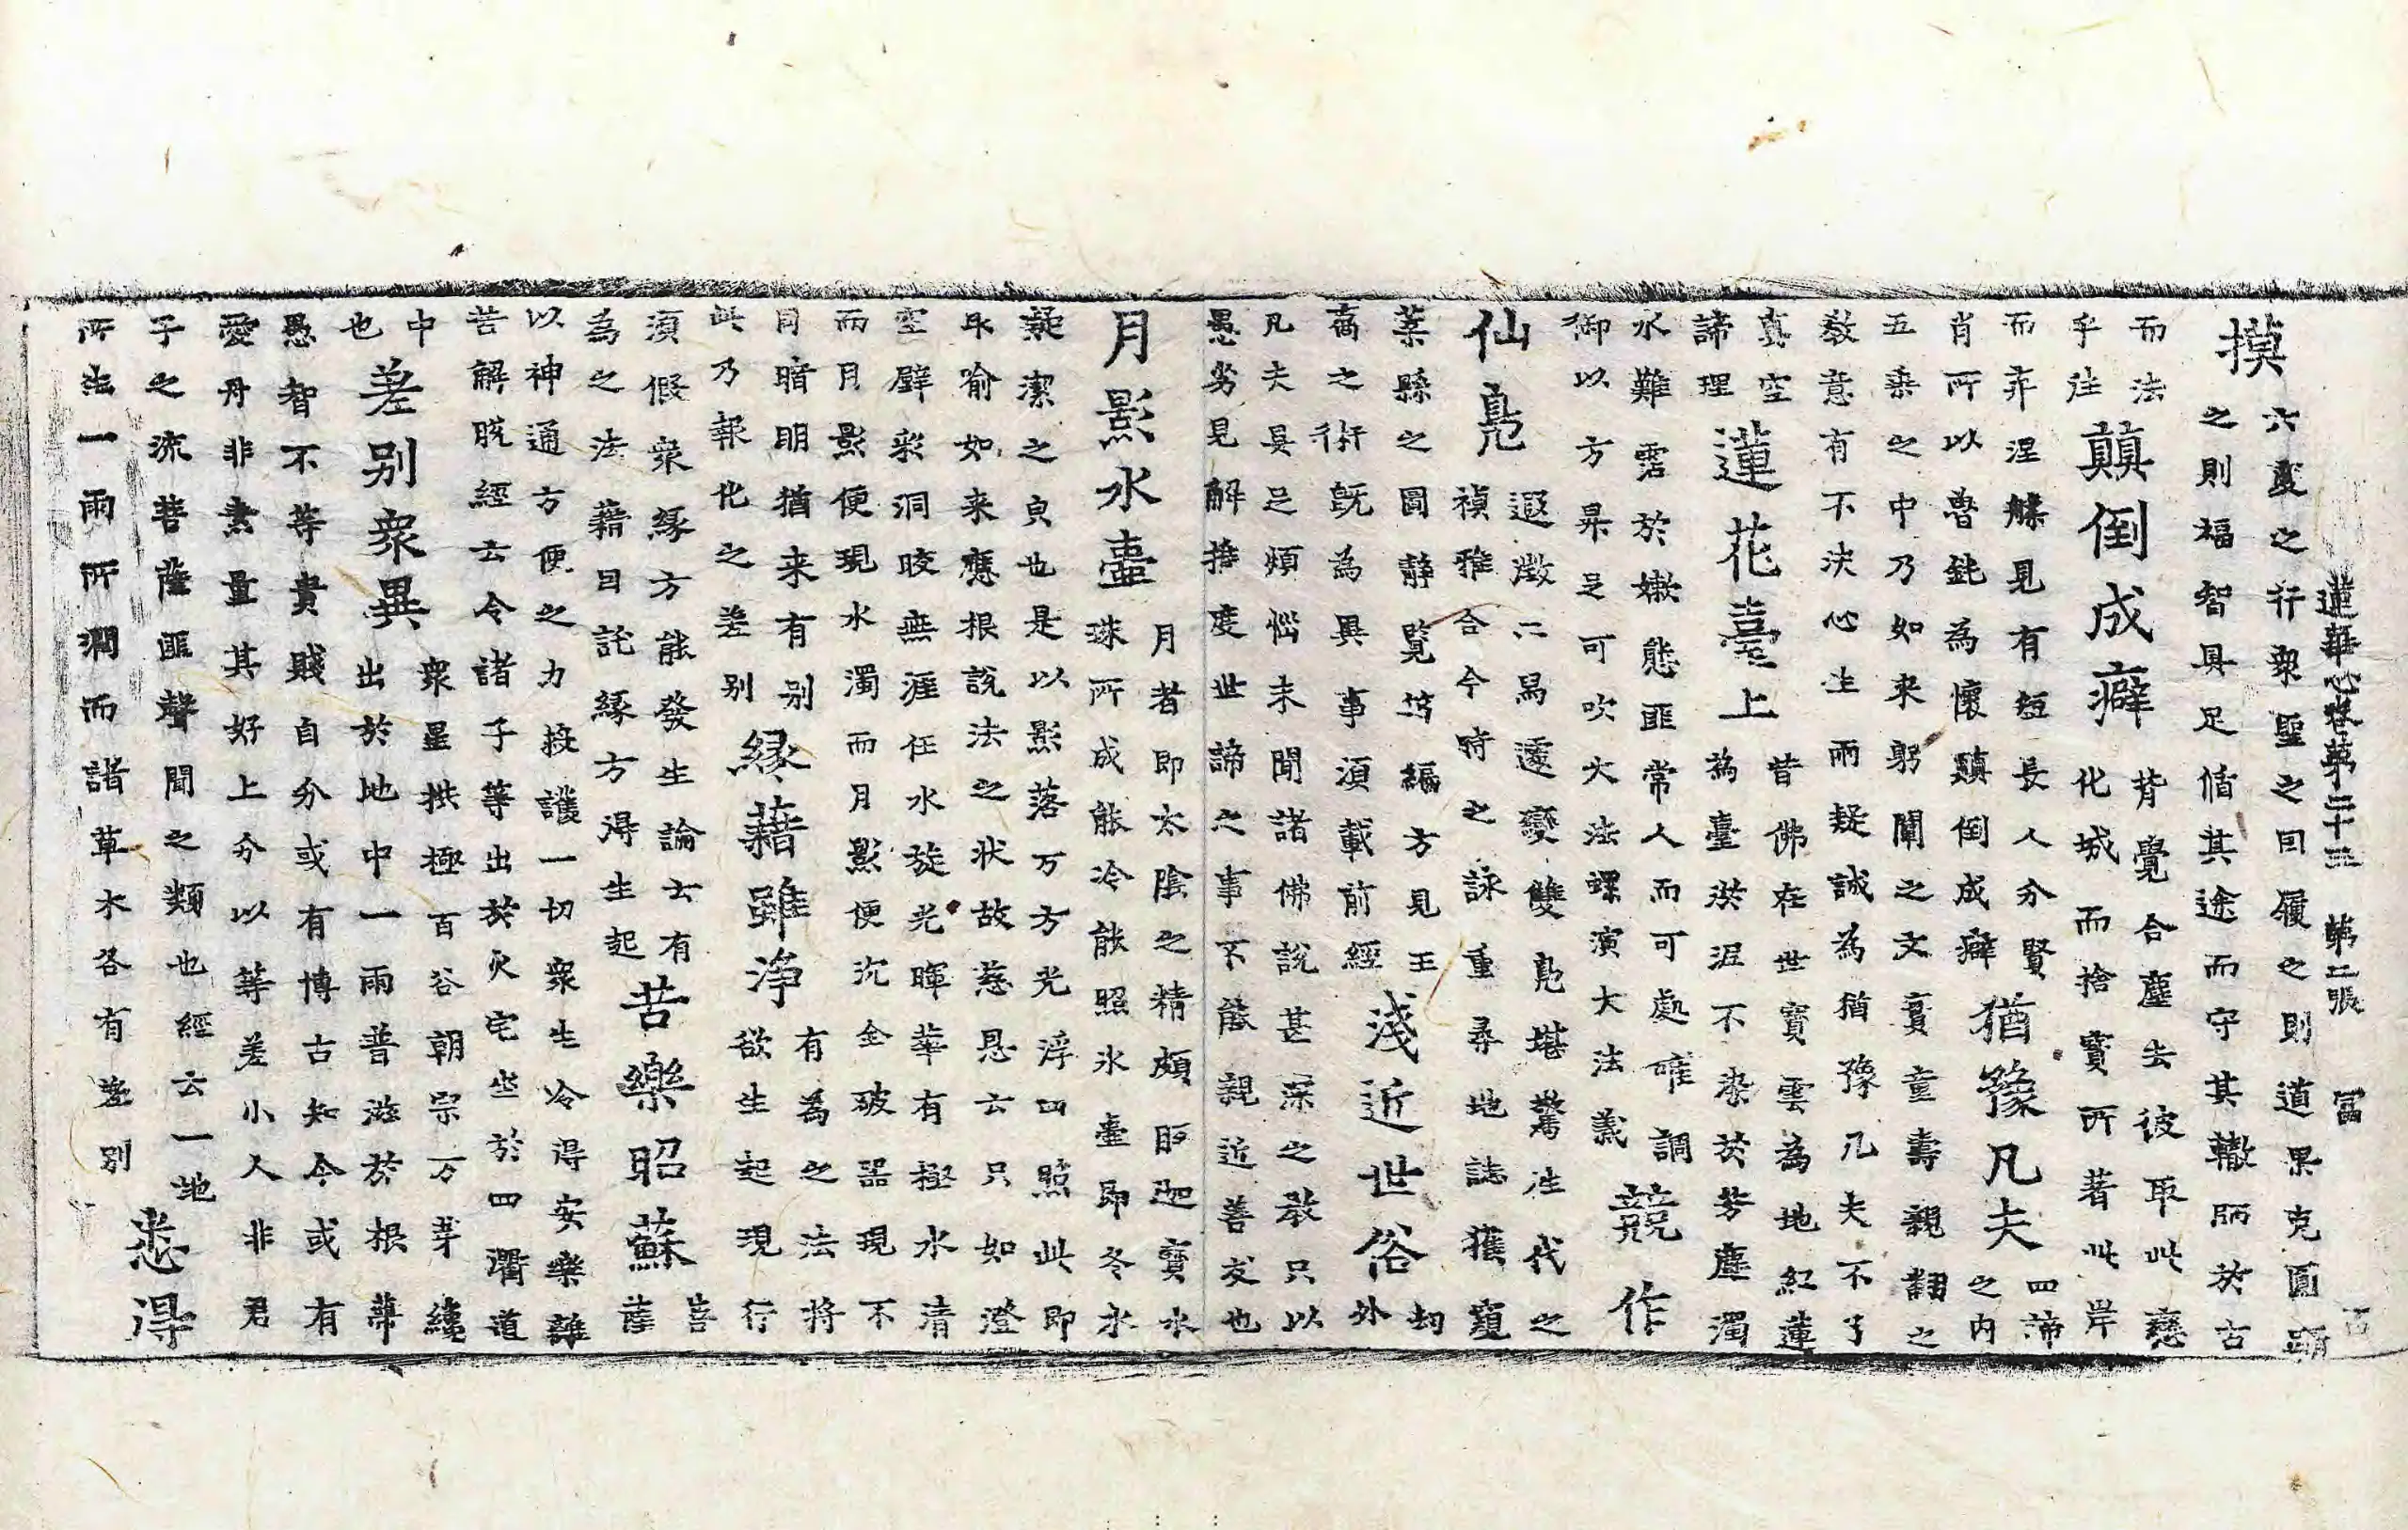 蓮華心卷第二十三 第二張 富 古
摸
六度之行衆聖之因履之則道果克圓蹈
之則福智具足脩其途而守其轍於古
而法
乎往
顛倒成癖
背覺合塵去彼取此慈
化城而捨寶所著此岸
而弃涅槃見有短長人分賢
肖所以魯鈍為懷顛倒成癖
猶豫凡夫
四諦
之内
五乗之中乃如来躬闡之文實童壽親翻之
教意有不決心生兩疑誠為猶豫凡夫不了
真空
諦理
蓮花臺上
昔佛在世寶雲為地紅蓮
為臺淤泥不染於芳塵濁
水難霑於嫩態匪常人而可處唯調
御以方果足可吹大法螺演大法義
競作
仙鳧
遐徵二舄遽變雙鳧堪驚往代之
禎雅合今時之詠重尋地誌獲窺
葉縣之圖静覽芸編方見王
喬之術旣為異事須載前經
淺近世俗
切
外
凡夫具足煩惱未聞諸佛說甚深之教只以
愚劣見解推度世諦之事不能親近善友也
月影水壷
月者即太陰之精頗胝迦寶水
珠所成能冷能照氷壷即冬氷
凝潔之皃也是以影落万方光浮四照此即
取喻如来應根說法之状故慈恩云只如澄
空壁彩洞晈無涯任水旋光暉華有極水清
而月影便現水濁而月影便沉全破噐現不
月暗明猶来有别
此乃報化之差别
縁藉雖淨
有為之法將
欲生起現行
湏假衆緣方能發生論云有
為之法藉因託緣方得生起
苦樂昭蘇
菩
薩
以神通方便之力接護一切衆生冷得安樂離
苦解脱經云令諸子等出於火宅坐於四衢道
中
也
差别衆異
衆星拱極百谷朝宗万芽纔
出於地中一雨普滋於根蔕
愚智不等貴賤自分或有博古知今或有
愛丹非素量其好上分以等差小人非君
子之流菩薩匪聲聞之類也經云一地
所生一雨所潤而諸草木各有差别
悉得